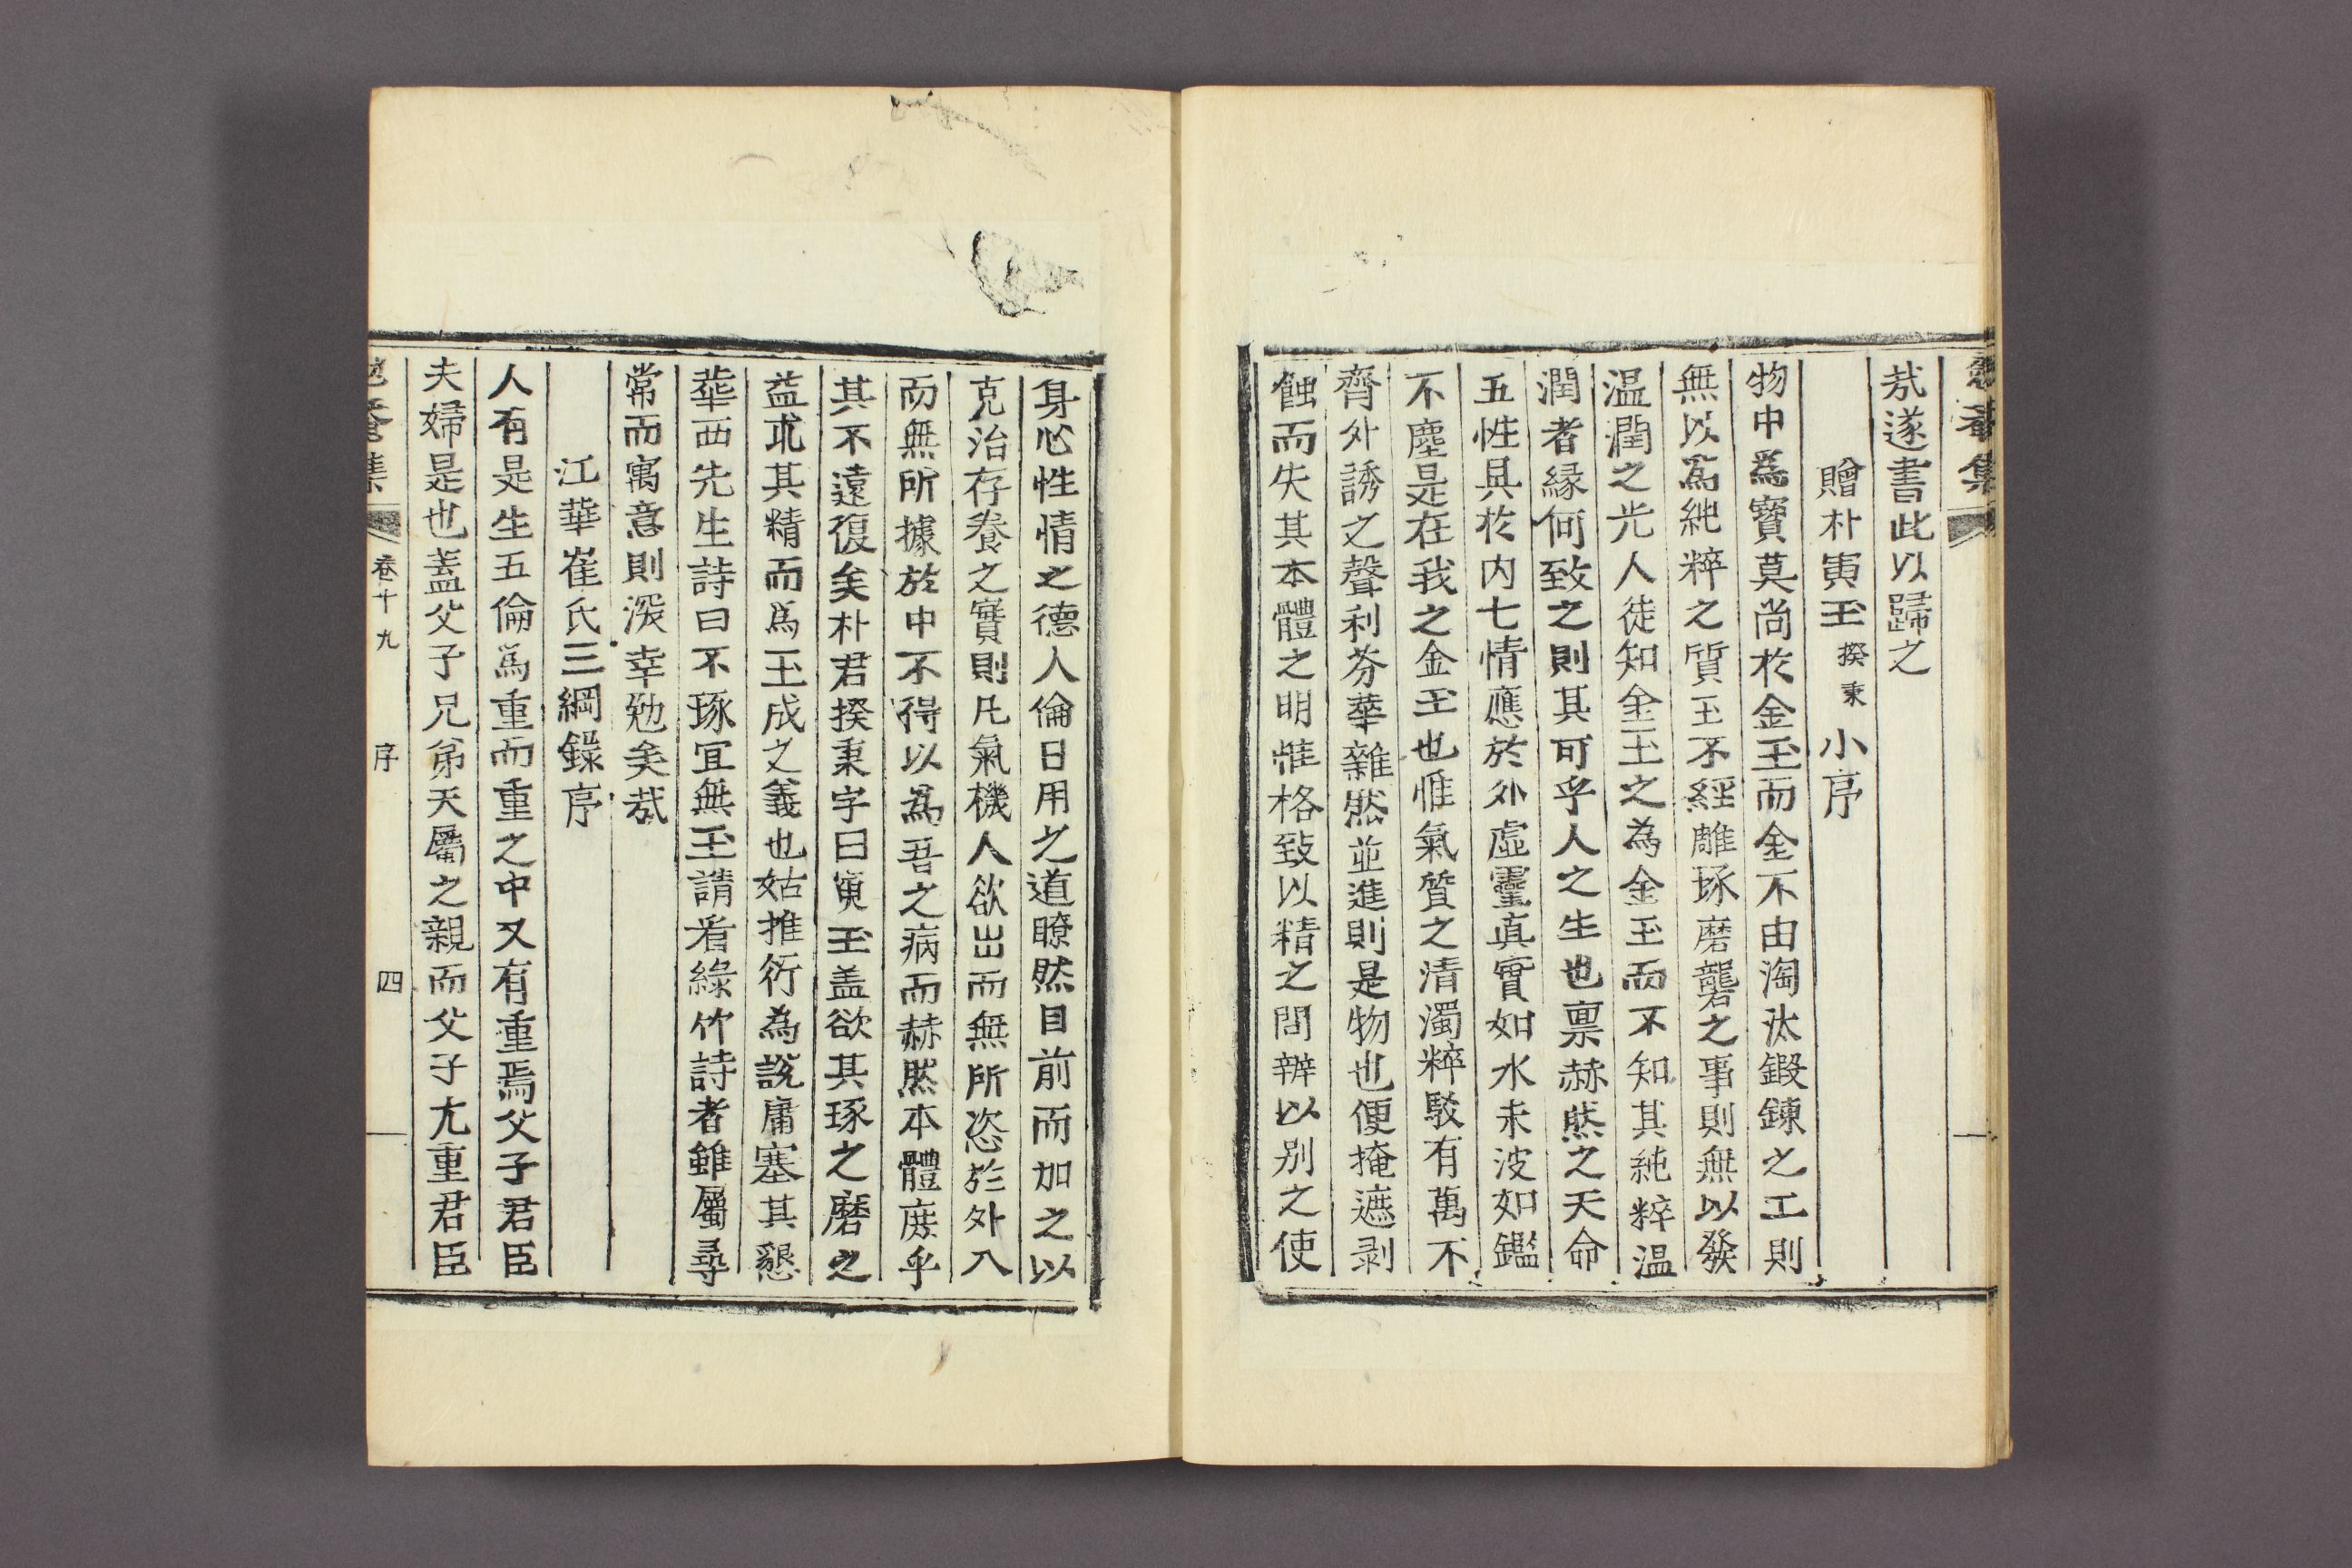 菴集
㢤遂書此以歸之
贈朴寅玉揆秉小序
物中爲寶莫尚於金玉而金不由淘汰鍛鍊之工則
無以爲純粹之質玉不經雕琢磨礱之事則無以發
温潤之光人徒知金玉之為金玉而不知其純粹温
潤者緣何致之則其可乎人之生也禀赫然之天命
五性具於内七情應於外虛靈真實如水未波如鑑
不塵是在我之金玉也惟氣質之清濁粹駁有萬不
齊外誘之聲利芬華雜然並進則是物也便掩遮剥
蝕而失其本體之明惟格致以精之問辨以别之使
身心性情之德人倫日用之道瞭然目前而加之以
克治存養之實則凡氣機人欲出而無所恣於外入
而無所據於中不得以為吾之病而赫然本體庶乎
其不遠復矣朴君揆秉字曰寅玉盖欲其琢之磨之
益求其精而爲玉成之義也姑推衍為說庸塞其懇
華西先生詩曰不琢宜無玉請看綠竹詩者雖屬尋
常而寓意則深幸勉矣㢤
江華崔氏三綱錄序
人有是生五倫爲重而重之中又有重焉父子君臣
夫婦是也盖父子兄弟天屬之親而父子尤重君臣
菴集
卷十九
序
四